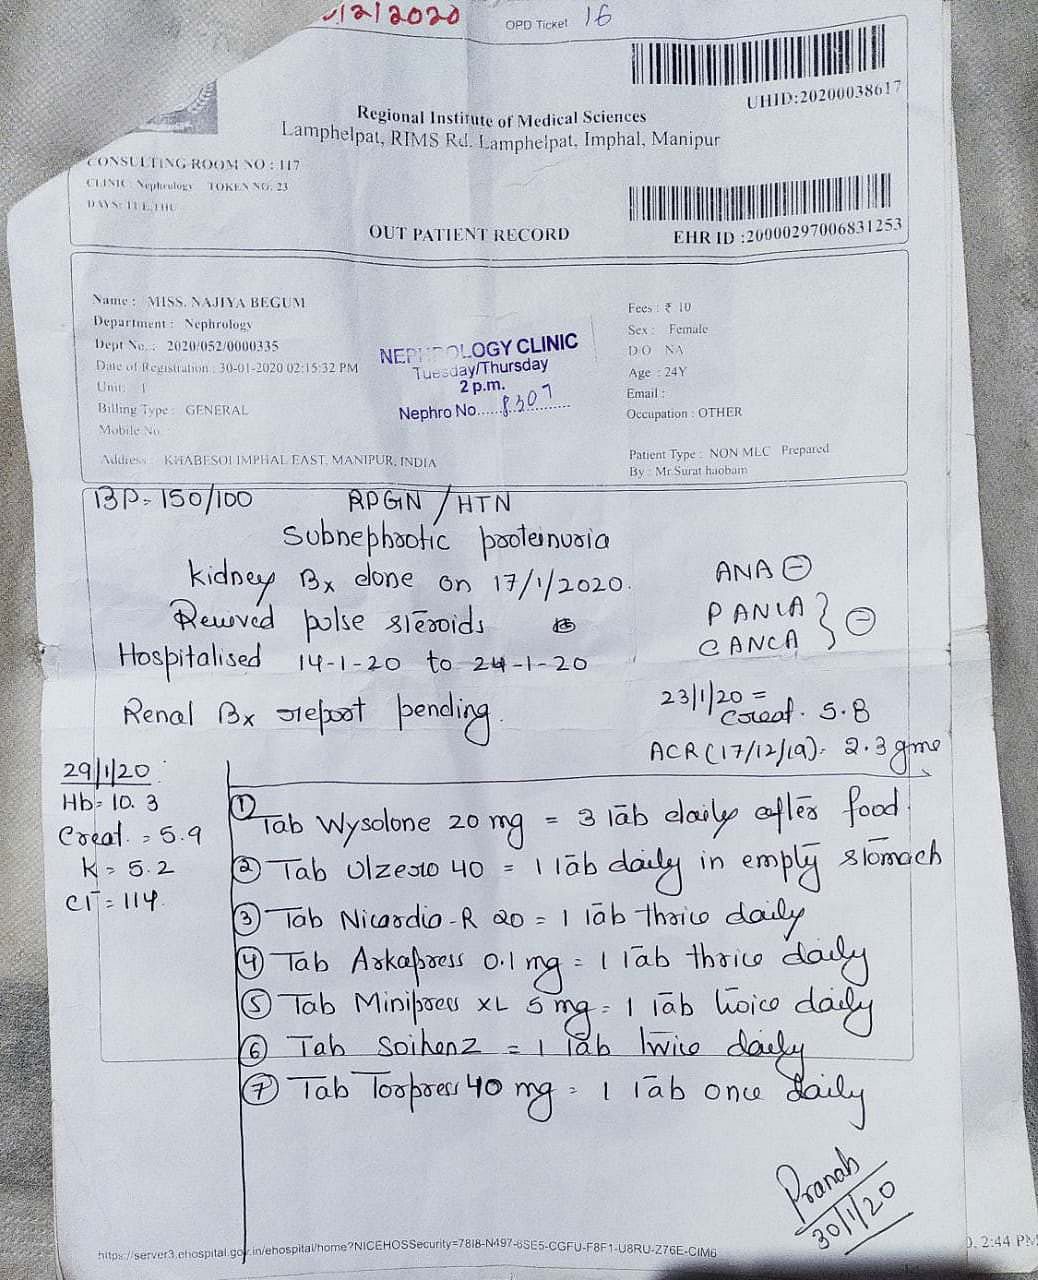 /2/2020
OPD Ticket 16
UHID:20200038617
Regional Institute of Medical Sciences
Lamphelpat, RIMS Rd. Lamphelpat, Imphal, Manipur
CONSULTING ROOM NO : 117
CLINIC : Nephrology TOKEN NO. 23
DAYS: TUE,THU
OUT PATIENT RECORD
EHR ID :20000297006831253
Name : MISS. NAJIYA BEGUM
Department : Nephrology
Dept No. : 2020/052/0000335
Date of Registration : 30-01-2020 02:15:32 PM
Unit: 1
Billing Type : GENERAL
Mobile No.
Address : KHABESOI IMPHAL EAST, MANIPUR, INDIA
NEPHROLOGY CLINIC
Tuesday/Thursday
2 p.m.
Nephro No......8307
Fees : ₹ 10
Sex : Female
D/O NA
Age : 24Y
Email :
Occupation : OTHER
Patient Type : NON MLC Prepared
By : Mr.Surat haobam
BP- 150/100 RPGN / HTN
Subnephrotic proteinuria
Kidney Bx done on 17/1/2020.
Received pulse steroids
Hospitalised 14-1-20 to 24-1-20
Renal Bx report pending.
ANA ⊖
PANCA } ⊖
CANCA
23/1/20 =
Creat. 5.8
ACR (17/12/19)= 2.3 gms
29/1/20
Hb= 10.3
Creat. = 5.9
K = 5.2
Cl¯ = 114
① Tab Wysolone 20 mg = 3 tab daily after food
② Tab Ulzero 40 = 1 tab daily in empty stomach
③ Tab Nicardia-R 20 = 1 tab thrice daily
④ Tab Arkapress 0.1 mg = 1 tab thrice daily
⑤ Tab Minipress XL 5 mg = 1 tab twice daily
⑥ Tab = 1 tab twice daily
⑦ Tab Torpress 40 mg = 1 tab once daily
Pranab
30/1/20
https://server3.ehospital.gov.in/ehospital/home?NICEHOSSecurity=78I8-N497-6SE5-CGFU-F8F1-U8RU-Z76E-CIM6
0, 2:44 PM